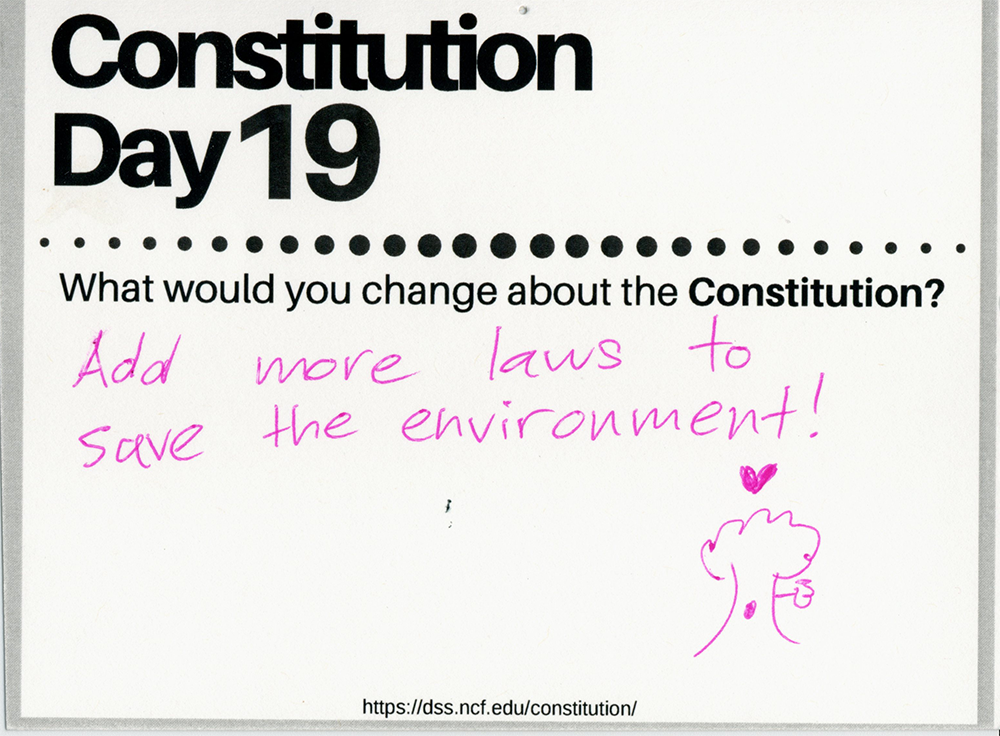 Constitution
Day 19
What would you change about the Constitution?
Add more laws to
save the environment!
https://dss.ncf.edu/constitution/